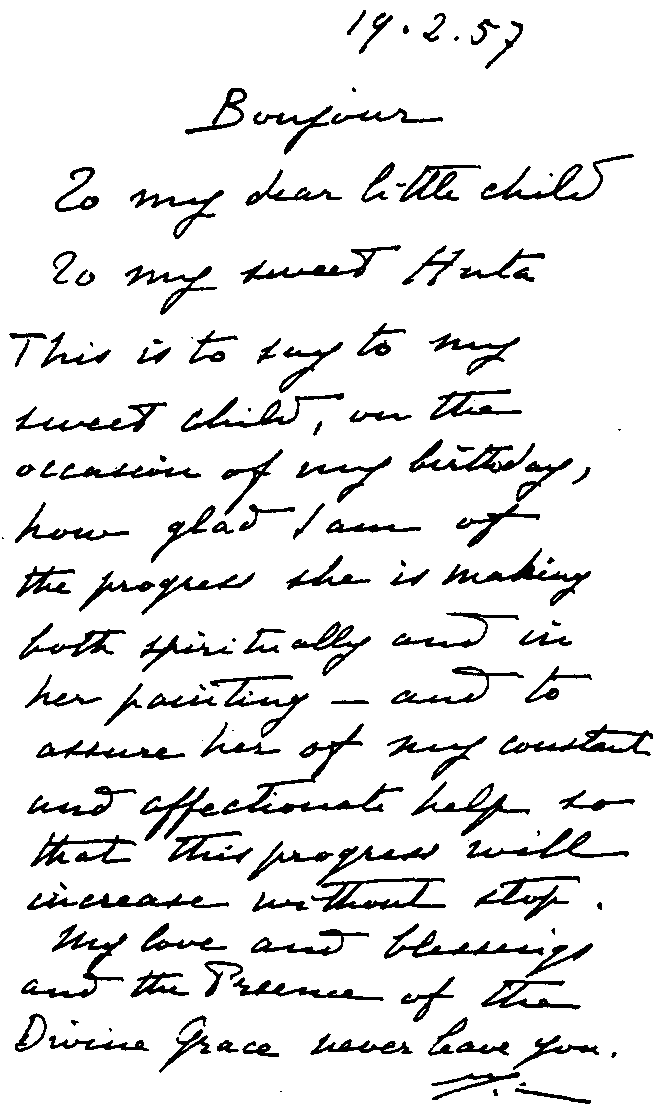 19.2.57
Bonjour
To my dear little child
To my sweet Huta
This is to say to my
sweet child, on the
occasion of my birthday,
how glad I am of
the progress she is making
both spiritually and in
her painting — and to
assure her of my constant
and affectionate help so
that this progress will
increase without stop.
My love and blessings
and the Presence of the
Divine Grace never leave you.